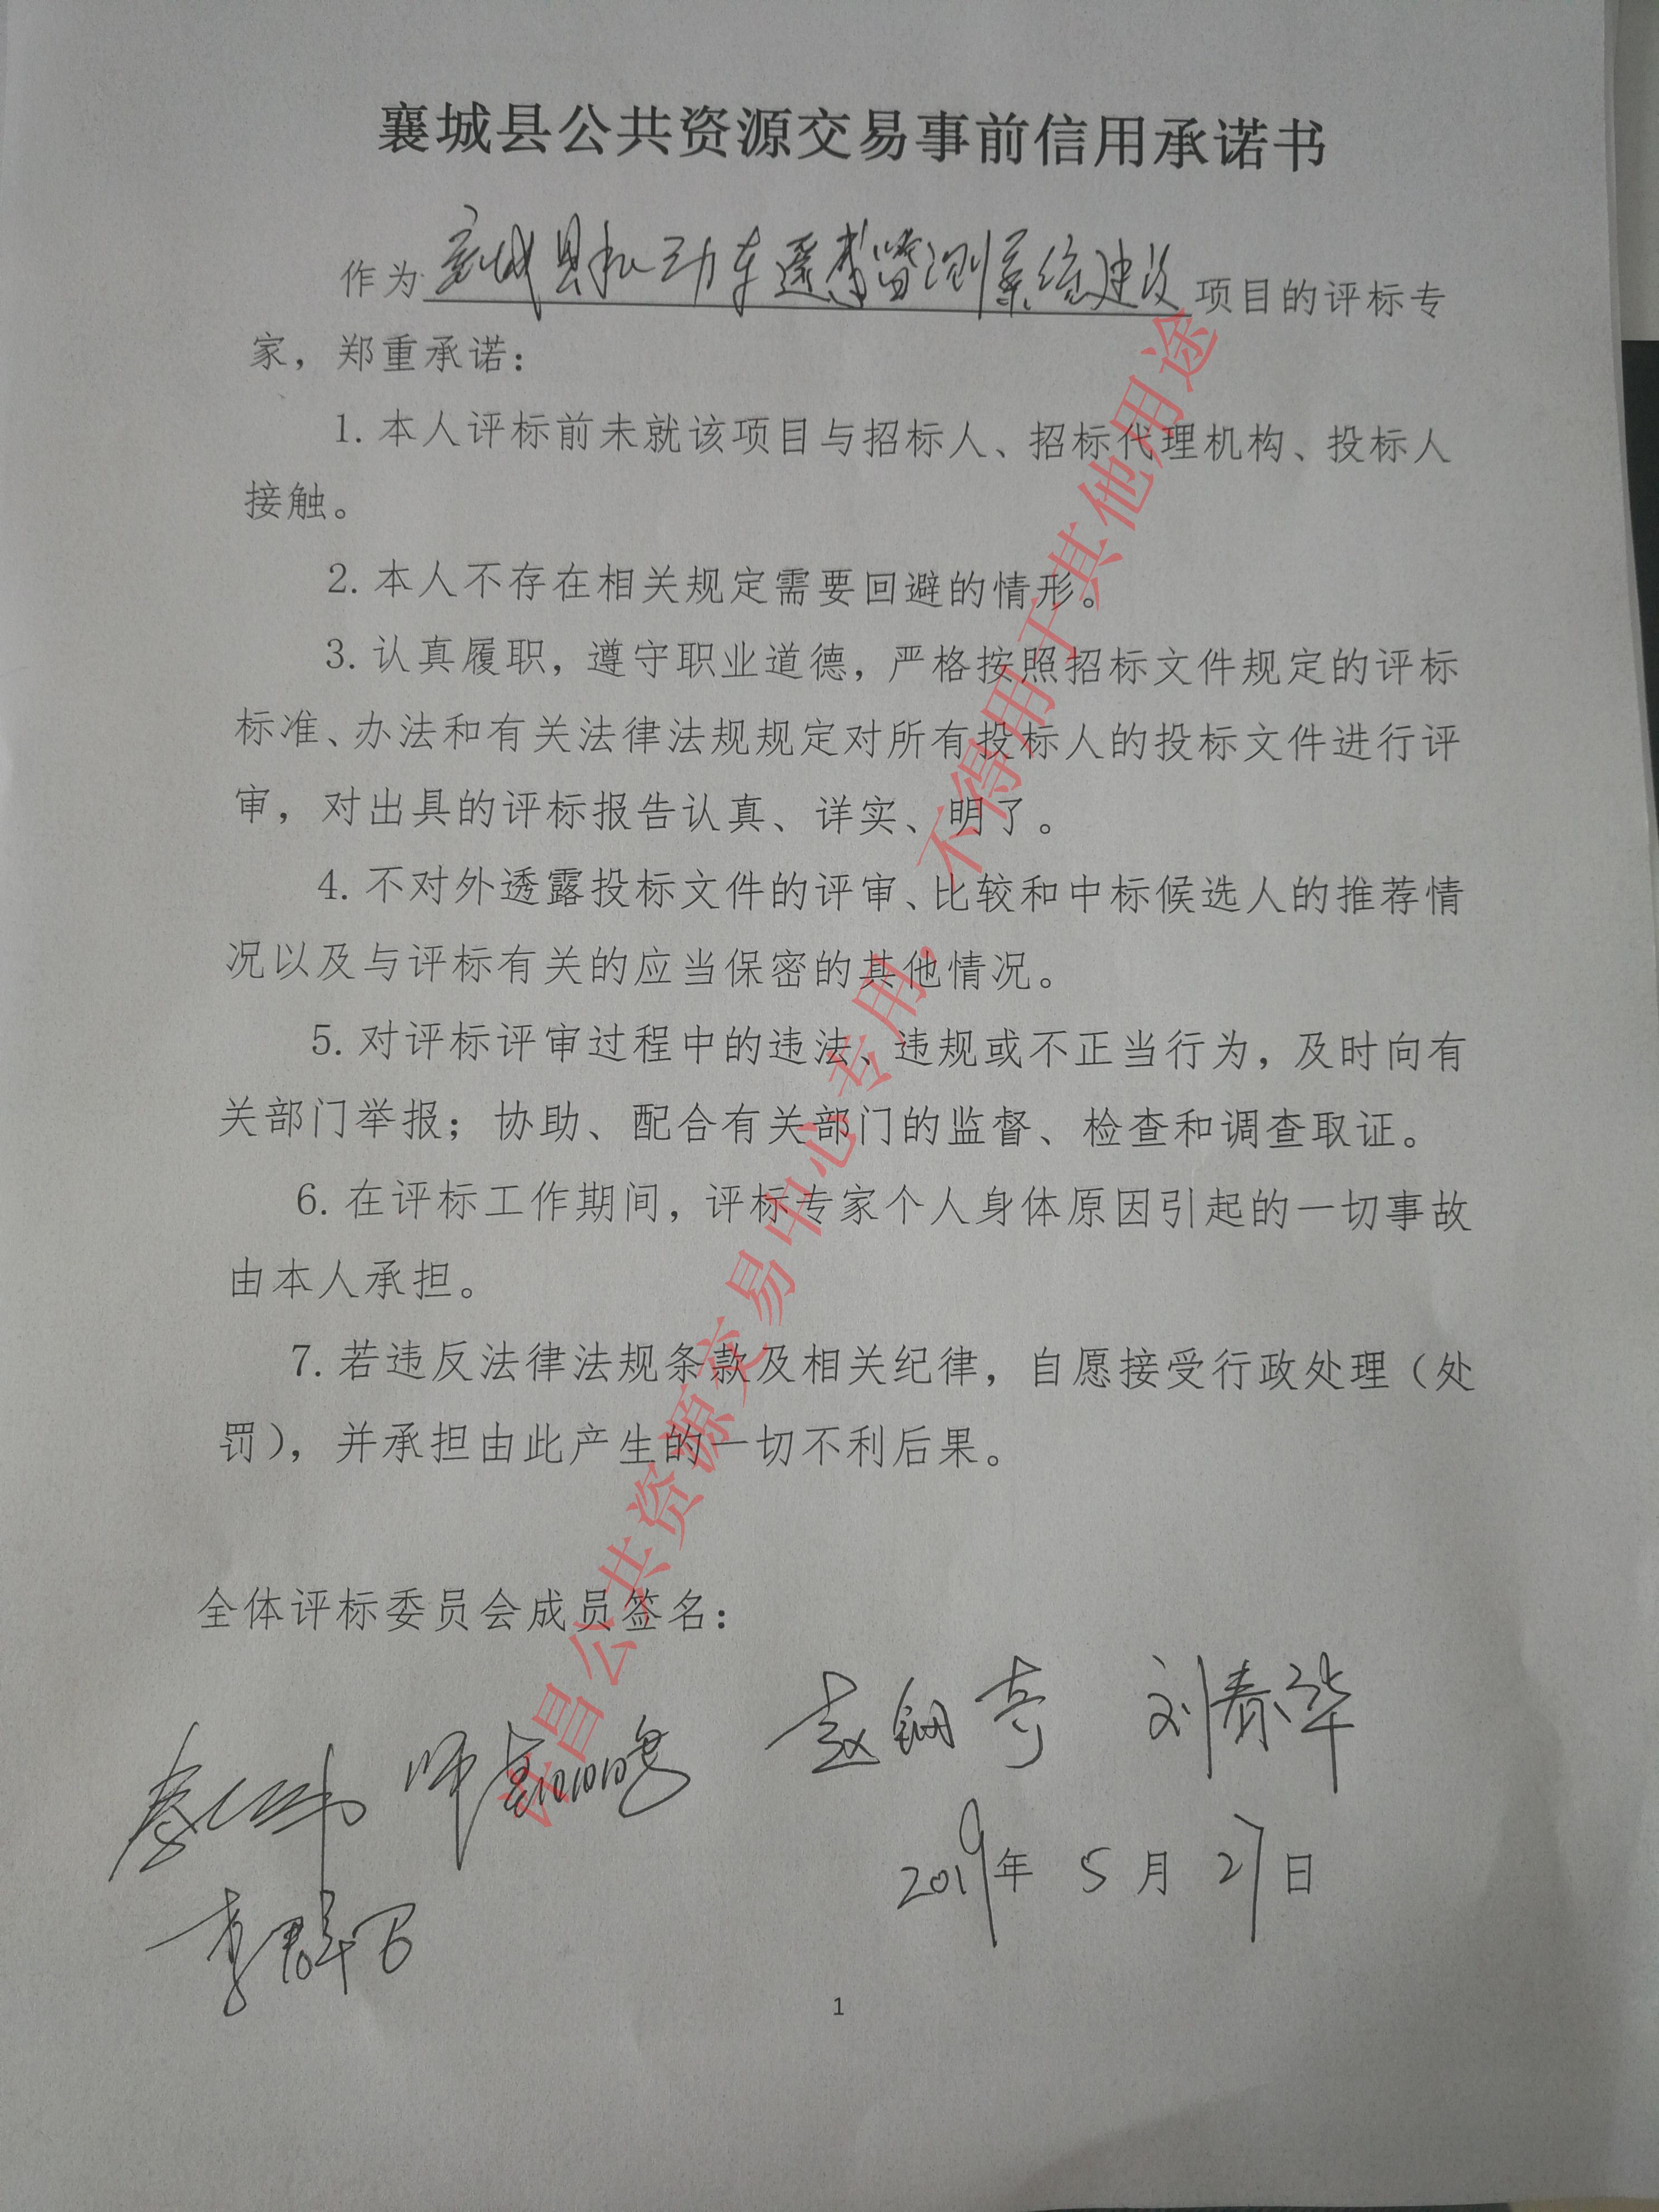 襄城县公共资源交易事前信用承诺书
作为襄城县机动车遥感监测系统建设项目的评标专
家，郑重承诺：
1.本人评标前未就该项目与招标人、招标代理机构、投标人
接触。
2.本人不存在相关规定需要回避的情形。
3.认真履职，遵守职业道德，严格按照招标文件规定的评标
标准、办法和有关法律法规规定对所有投标人的投标文件进行评
审，对出具的评标报告认真、详实、明了。
4.不对外透露投标文件的评审、比较和中标候选人的推荐情
况以及与评标有关的应当保密的其他情况。
5.对评标评审过程中的违法、违规或不正当行为，及时向有
关部门举报；协助、配合有关部门的监督、检查和调查取证。
6.在评标工作期间，评标专家个人身体原因引起的一切事故
由本人承担。
7.若违反法律法规条款及相关纪律，自愿接受行政处理（处
罚），并承担由此产生的一切不利后果。
全体评标委员会成员签名：
刘春华
2019年 5月 27日
1
许昌公共资源交易中心专用，不得用于其他用途